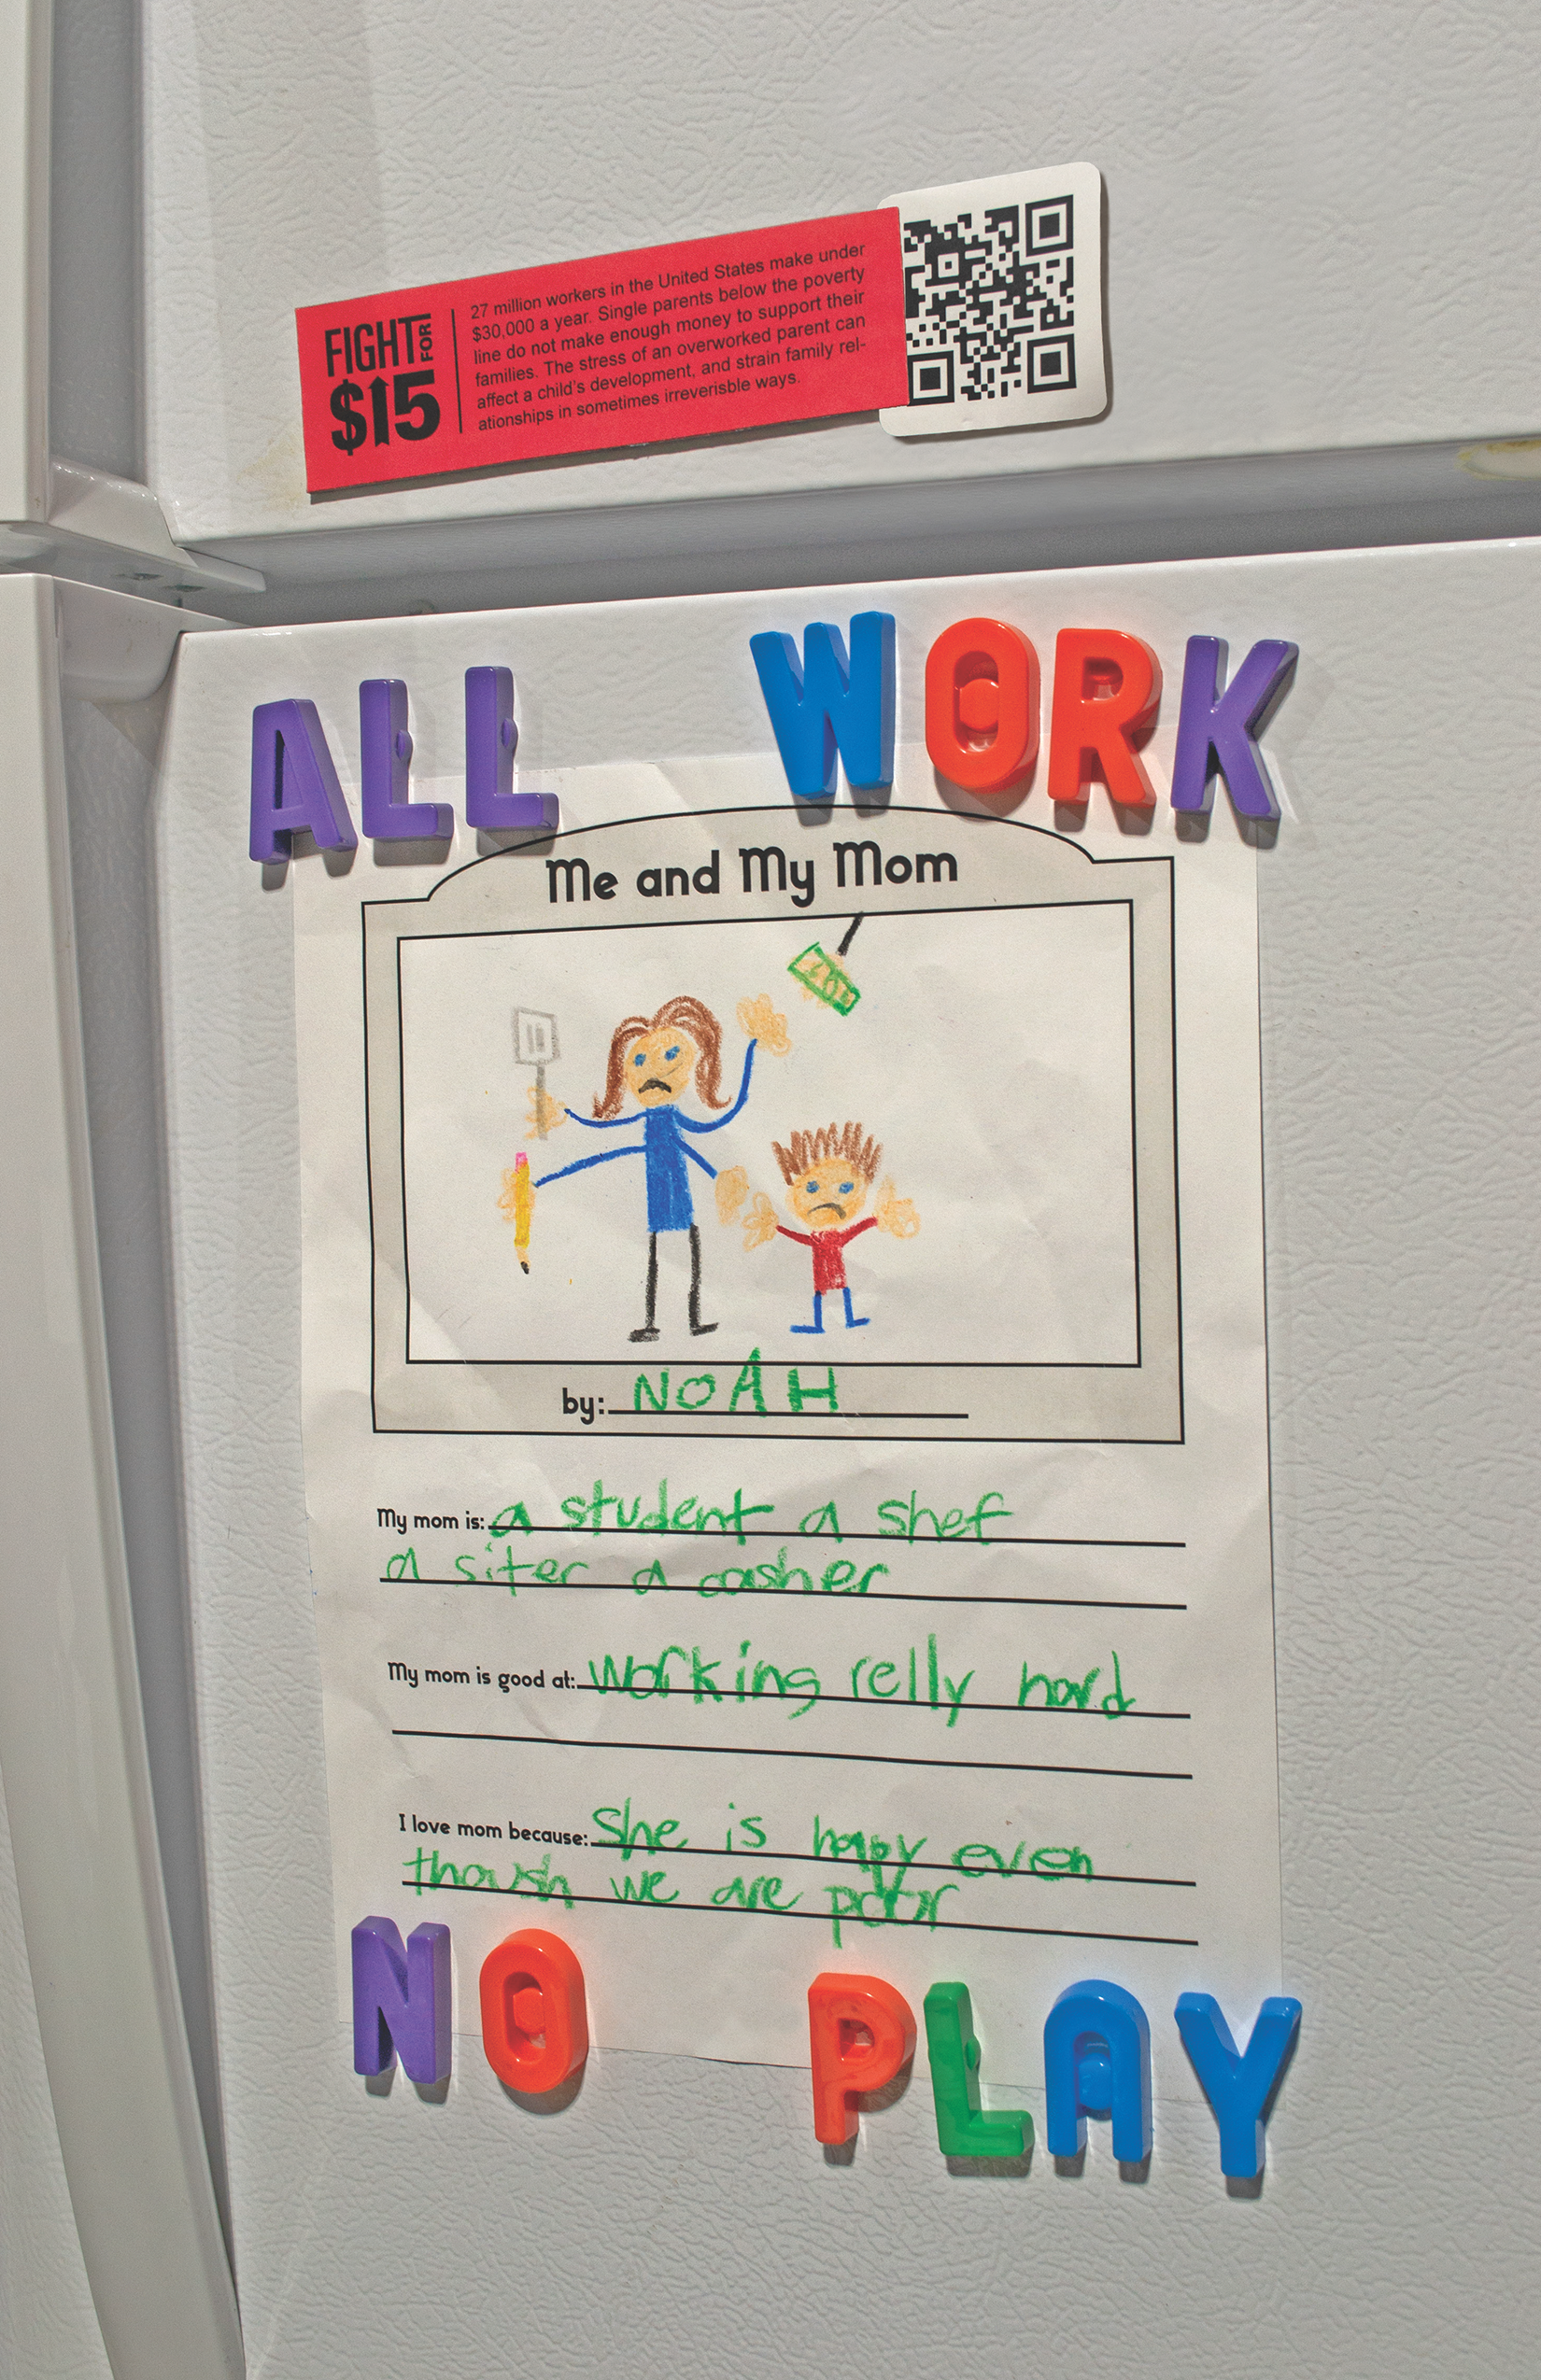 FIGHT FOR
$15
27 million workers in the United States make under
$30,000 a year. Single parents below the poverty
line do not make enough money to support their
families. The stress of an overworked parent can
affect a child's development, and strain family rel-
ationships in sometimes irreverisble ways.
ALL WORK
Me and My Mom
by: NOAH
My mom is: a student a shef
a siter a casher
My mom is good at: working relly hard
I love mom because: She is hapy even
thoush we are poor
NO PLAY